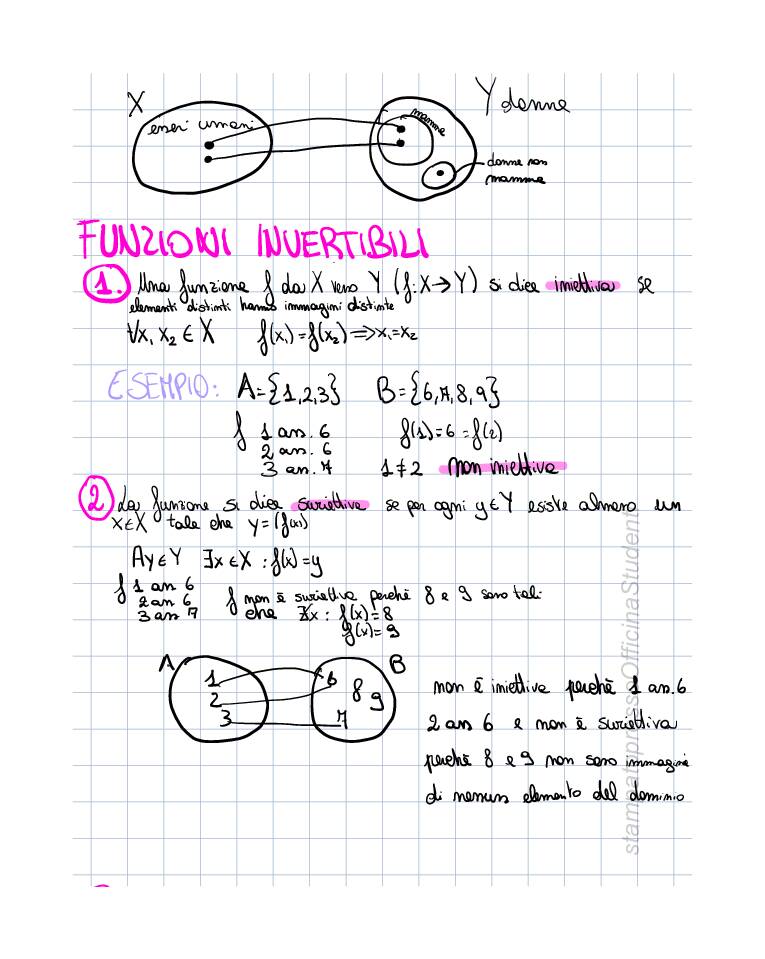 X
Y donne
esseri umani
mamme
donne non
mamme
FUNZIONI INVERTIBILI
1. Una funzione f da X verso Y (f: X→Y) si dice iniettiva se
elementi distinti hanno immagini distinte
∀x₁ x₂ ∈ X f(x₁) = f(x₂) ⇒ x₁=x₂
ESEMPIO: A={1,2,3} B={6,7,8,9}
f 1 ass. 6 f(1)=6=f(2)
2 ass. 6
3 ass. 7 1≠2 non iniettiva
2 La funzione si dice suriettiva se per ogni y∈Y esiste almeno un
x∈X tale che y=(f(x))
∀y∈Y ∃x∈X : f(x)=y
f 1 ass 6 f non è suriettiva perchè 8 e 9 sono tali
2 ass 6 che ∄x : f(x)=8
3 ass 7 f(x)=9
A B
1 6
2 8 9
3 7
non è iniettiva perchè 1 ass. 6
2 ass 6 e non è suriettiva
perchè 8 e 9 non sono immagini
di nessun elemento del dominio
stampato presso OfficinaStudenti